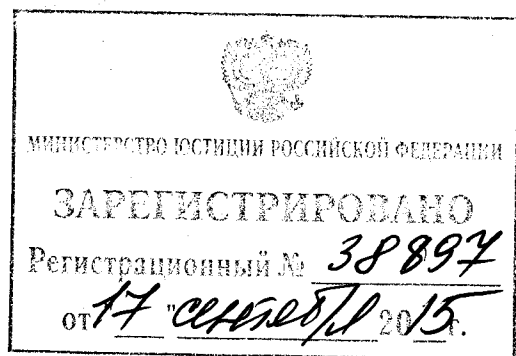 МИНИСТЕРСТВО ЮСТИЦИИ РОССИЙСКОЙ ФЕДЕРАЦИИ
ЗАРЕГИСТРИРОВАНО
Регистрационный № 38897
от "17" сентября 2015г.